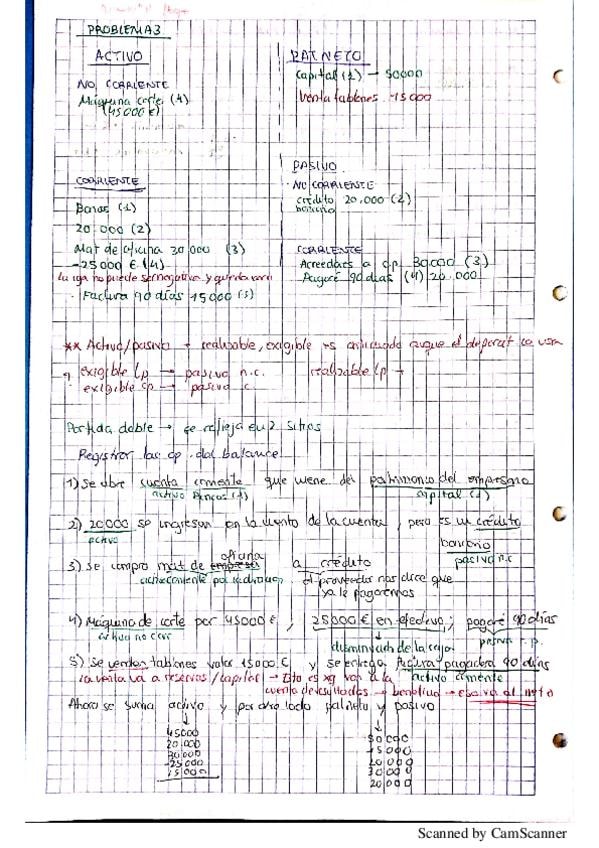 PROBLEMA 3
ACTIVO
NO CORRIENTE
Máquina corte (4)
(45000€)
CORRIENTE
Banos (1)
20.000 (2)
Mat de oficina 30.000 (3)
-25000 € (4)
La iga no puede ser negativa y queda rara
· Factura 90 días 15000 (5)
PAT NETO
Capital (1) → 50000
Venta tablenes -15000
PASIVO
· NO CORRIENTE
crédito 20.000 (2)
CORRIENTE
Acreedores a c.p. 30.000 (3)
Pagaré 90 días (4) 20.000
** Activo/pasivo + realizable, exigible
exigible Lp → pasivo n.c. realizable Lp →
exigible cp → pasivo c.
Partida doble → se refleja en 2 sitios
Registrar las op. del balance
1) Se abre cuenta corriente que viene del patrimonio del empresario
activo Bancos (1) capital (1)
2) 20000 se ingresan en la cuenta, pero es un crédito
activo bancario
3) Se compra mat de oficina a crédito pasivo n.c
el proveedor nos dice que
ya le pagaremos
4) Máquina de corte por 45000€; 25000€ en efectivo; pagaré 90 días
activo no corr disminución de la caja pasivo c.p.
5) Se venden tablones valor 15000€ y se entrega factura pagadera 90 días
la venta va a reservas/capital → Esto es xq va a la activo corriente
cuenta de resultados → beneficio →
Ahora se suma activo y por otro lado pat neto y pasivo
45000
20.000
30.000
-25000
15000
50000
15000
20000
30000
20000
Scanned by CamScanner